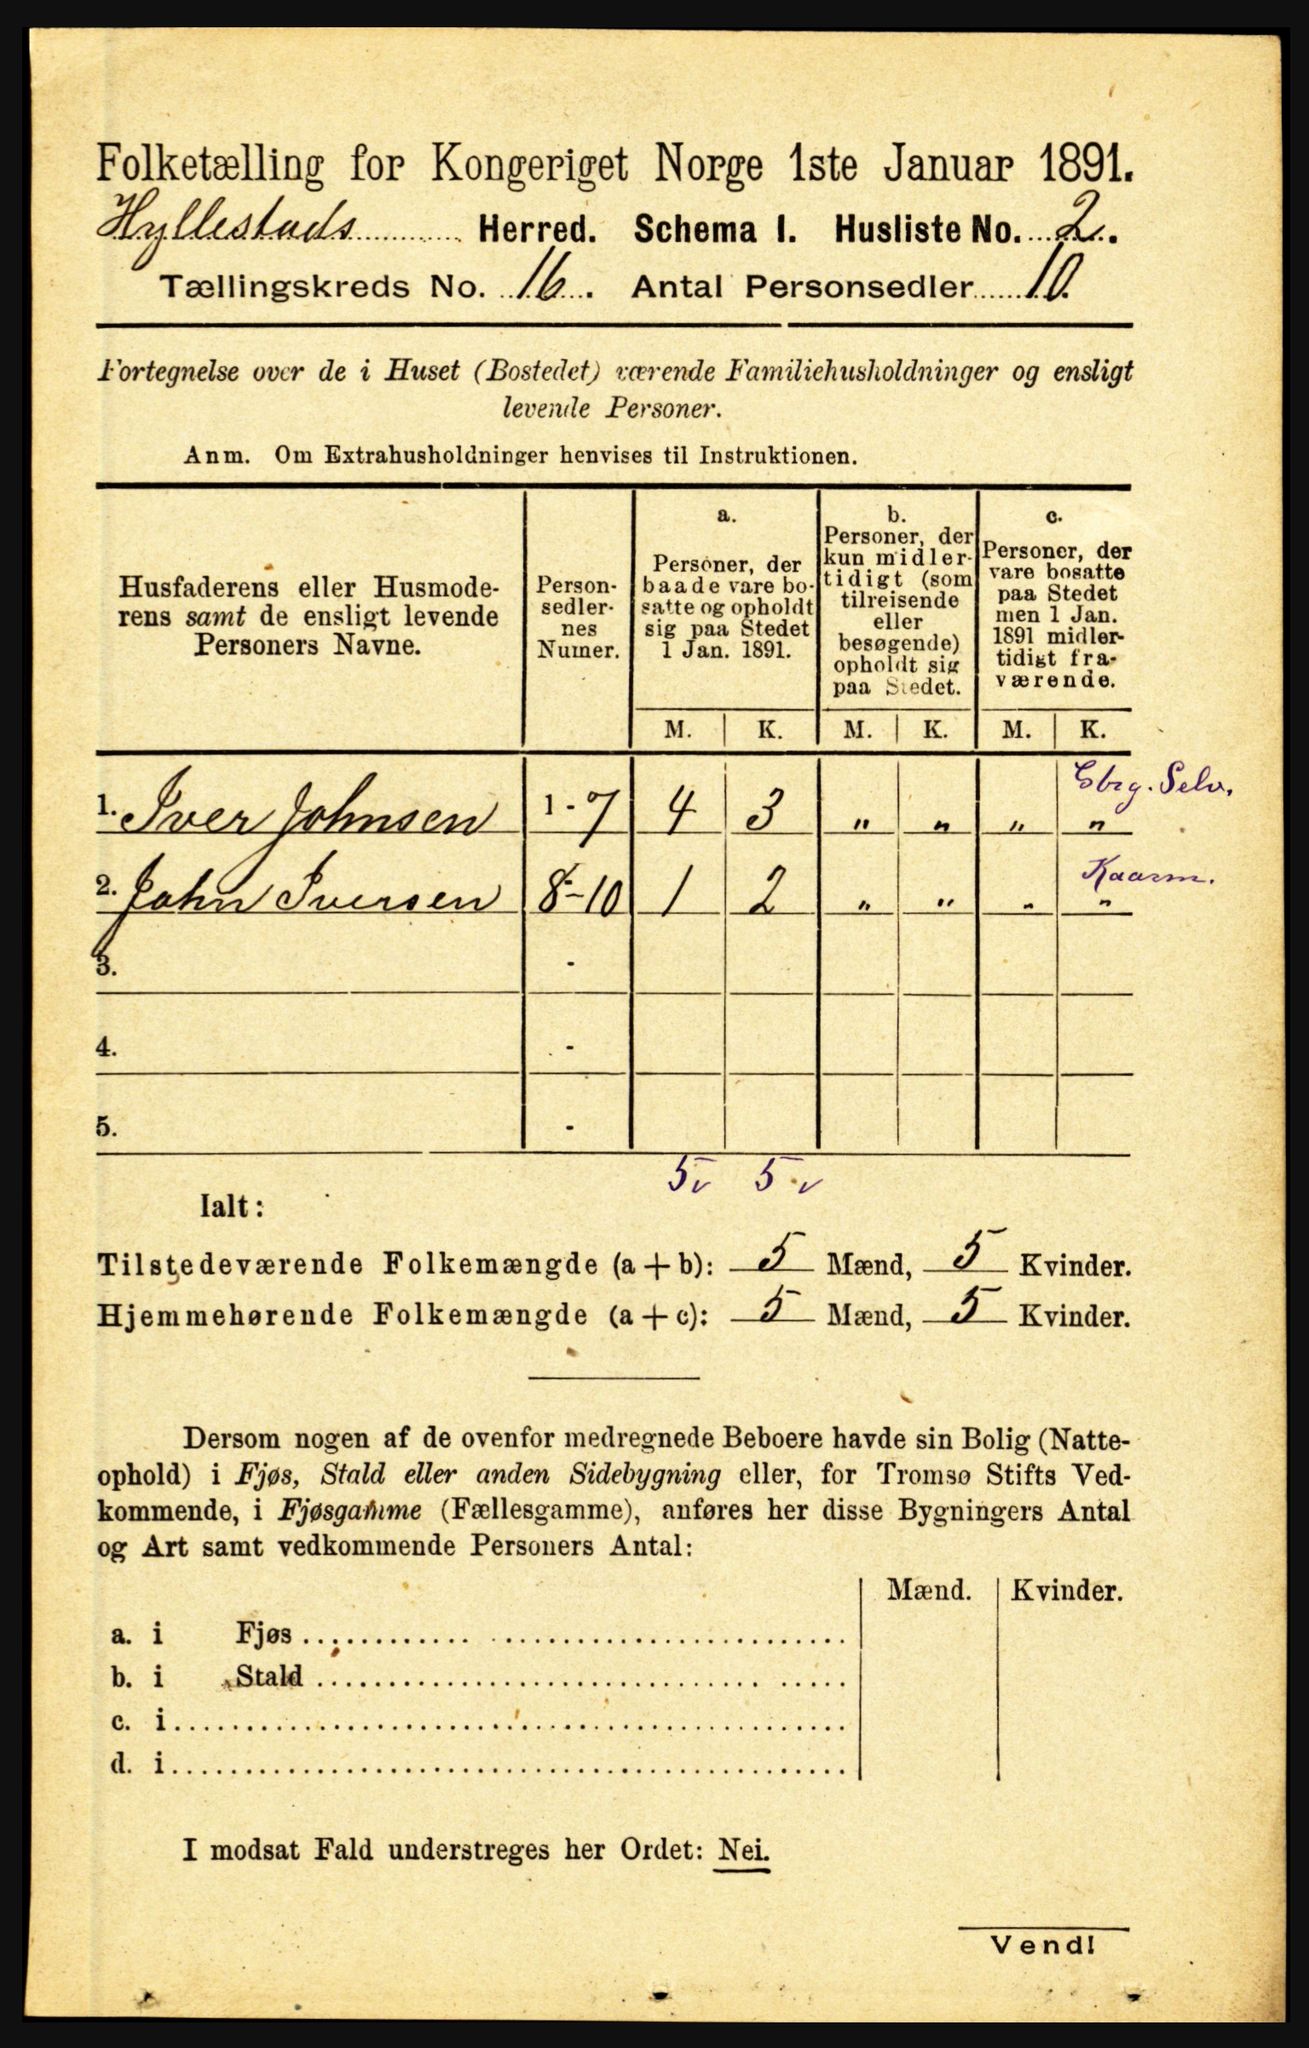 Folketælling for Kongeriget Norge 1ste Januar 1891.
Hyllestads Herred. Schema I. Husliste No. 2.
Tællingskreds No. 16. Antal Personsedler 10.
Fortegnelse over de i Huset (Bostedet) værende Familiehusholdninger og ensligt
levende Personer.
Anm. Om Extrahusholdninger henvises til Instruktionen.
Husfaderens eller Husmode-
rens samt de ensligt levende
Personers Navne.
Person-
sedler-
nes
Numer.
a.
Personer, der
baade vare bo-
satte og opholdt
sig paa Stedet
1 Jan. 1891.
b.
Personer, der
kun midler-
tidigt (som
tilreisende
eller
besøgende)
opholdt sig
paa Stedet.
c.
Personer, der
vare bosatte
paa Stedet
men 1 Jan.
1891 midler-
tidigt fra-
værende.
M. K. M. K. M. K.
Gbrg. Selv.
1. Iver Johnsen 1-7 4 3 „ „ „ „
Kaarm.
2. John Iversen 8-10 1 2 „ „ „ „
3. -
4. -
5. -
5v 5v
Ialt:
Tilstedeværende Folkemængde (a + b): 5 Mænd, 5 Kvinder.
Hjemmehørende Folkemængde (a + c): 5 Mænd, 5 Kvinder.
Dersom nogen af de ovenfor medregnede Beboere havde sin Bolig (Natte-
ophold) i Fjøs, Stald eller anden Sidebygning eller, for Tromsø Stifts Ved-
kommende, i Fjøsgamme (Fællesgamme), anføres her disse Bygningers Antal
og Art samt vedkommende Personers Antal:
Mænd. Kvinder.
a. i Fjøs
b. i Stald
c. i
d. i
I modsat Fald understreges her Ordet: Nei.
Vend!